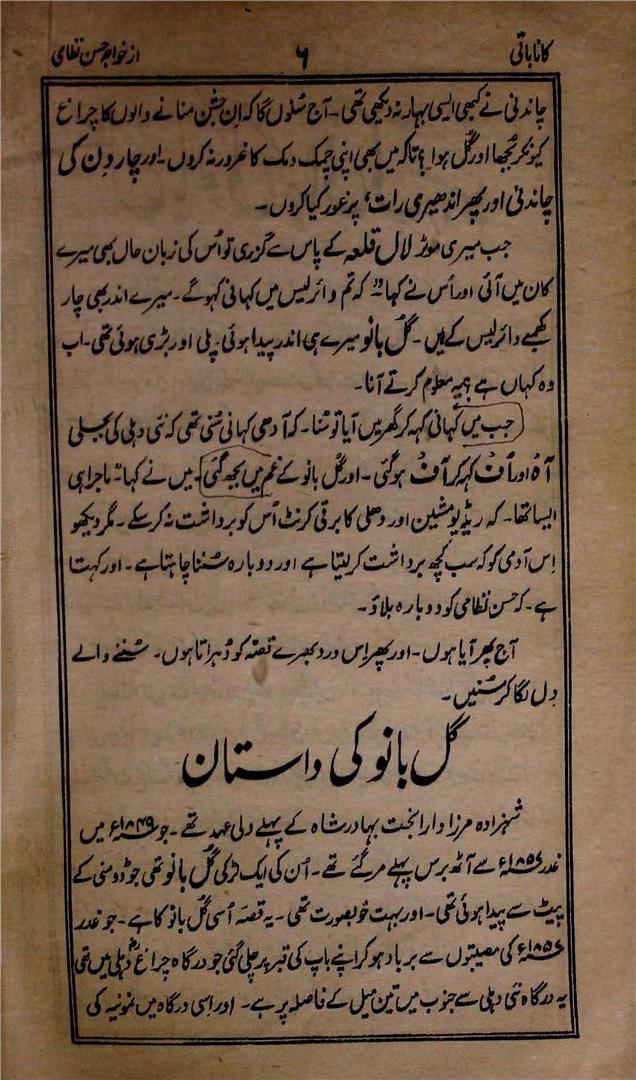 کاناباتی ۶ از خواجہ حسن نظامی
چاندنی نے کبھی ایسی بہار نہ دیکھی تھی۔ آج سنوں گا کہ اِن جشن منانے والوں کا چراغ
کیونکر بُجھا اور گُل ہوا؟ تاکہ میں بھی اپنی چمک دمک کا غرور نہ کروں۔ اور چار دِن کی
چاندنی اور پھر اندھیری رات، پر غور کیا کروں۔
جب میری موٹر لال قلعہ کے پاس سے گزری تو اُس کی زبان حال بھی میرے
کان میں آئی اور اُس نے کہا" کہ تم وائرلیس میں کہانی کہو گے۔ میرے اندر بھی چار
کھمبے وائرلیس کے ہیں۔ گُل بانو میرے ہی اندر پیدا ہوئی۔ پلی اور بڑی ہوئی تھی۔ اب
وہ کہاں ہے یہ معلوم کرتے آنا۔
جب میں کہانی کہہ کر گھر میں آیا تو سُنا۔ کہ آدھی کہانی سُنی تھی کہ نئی دہلی کی بجلی
آہ اور اُف کہہ کر آف ہوگئی۔ اور گُل بانو کے غم میں بجھ گئی۔ میں نے کہا" ماجرا ہی
ایسا تھا۔ کہ ریڈیو مشین اور دھلی کا برقی کرنٹ اُس کو برداشت نہ کر سکے۔ مگر دیکھو
اِس آدمی کو کہ سب کچھ برداشت کر لیتا ہے اور دوبارہ سُننا چاہتا ہے۔ اور کہتا
ہے۔ کہ حسن نظامی کو دوبارہ بلاؤ۔
آج پھر آیا ہوں۔ اور پھر اِس درد بھرے قصّہ کو دُہراتا ہوں۔ سُننے والے
دِل لگا کر سُنیں۔
گُل بانو کی داستان
شہزادہ مرزا دارا بخت بہادر شاہ کے پہلے ولی عہد تھے۔ جو ۱۸۴۹ء میں
غدر ۱۸۵۷ء سے آٹھ برس پہلے مر گئے تھے۔ اُن کی ایک لڑکی گُل بانو تھی جو ڈومنی کے
پیٹ سے پیدا ہوئی تھی۔ اور بہت خوبصورت تھی۔ یہ قصّہ اُسی گُل بانو کا ہے۔ جو غدر
۱۸۵۷ء کی مصیبتوں سے برباد ہو کر اپنے باپ کی قبر پر چلی گئی جو درگاہ چراغ دہلی میں تھی
یہ درگاہ نئی دہلی سے جنوب میں تین میل کے فاصلہ پر ہے۔ اور اِسی درگاہ میں نمونیہ کی